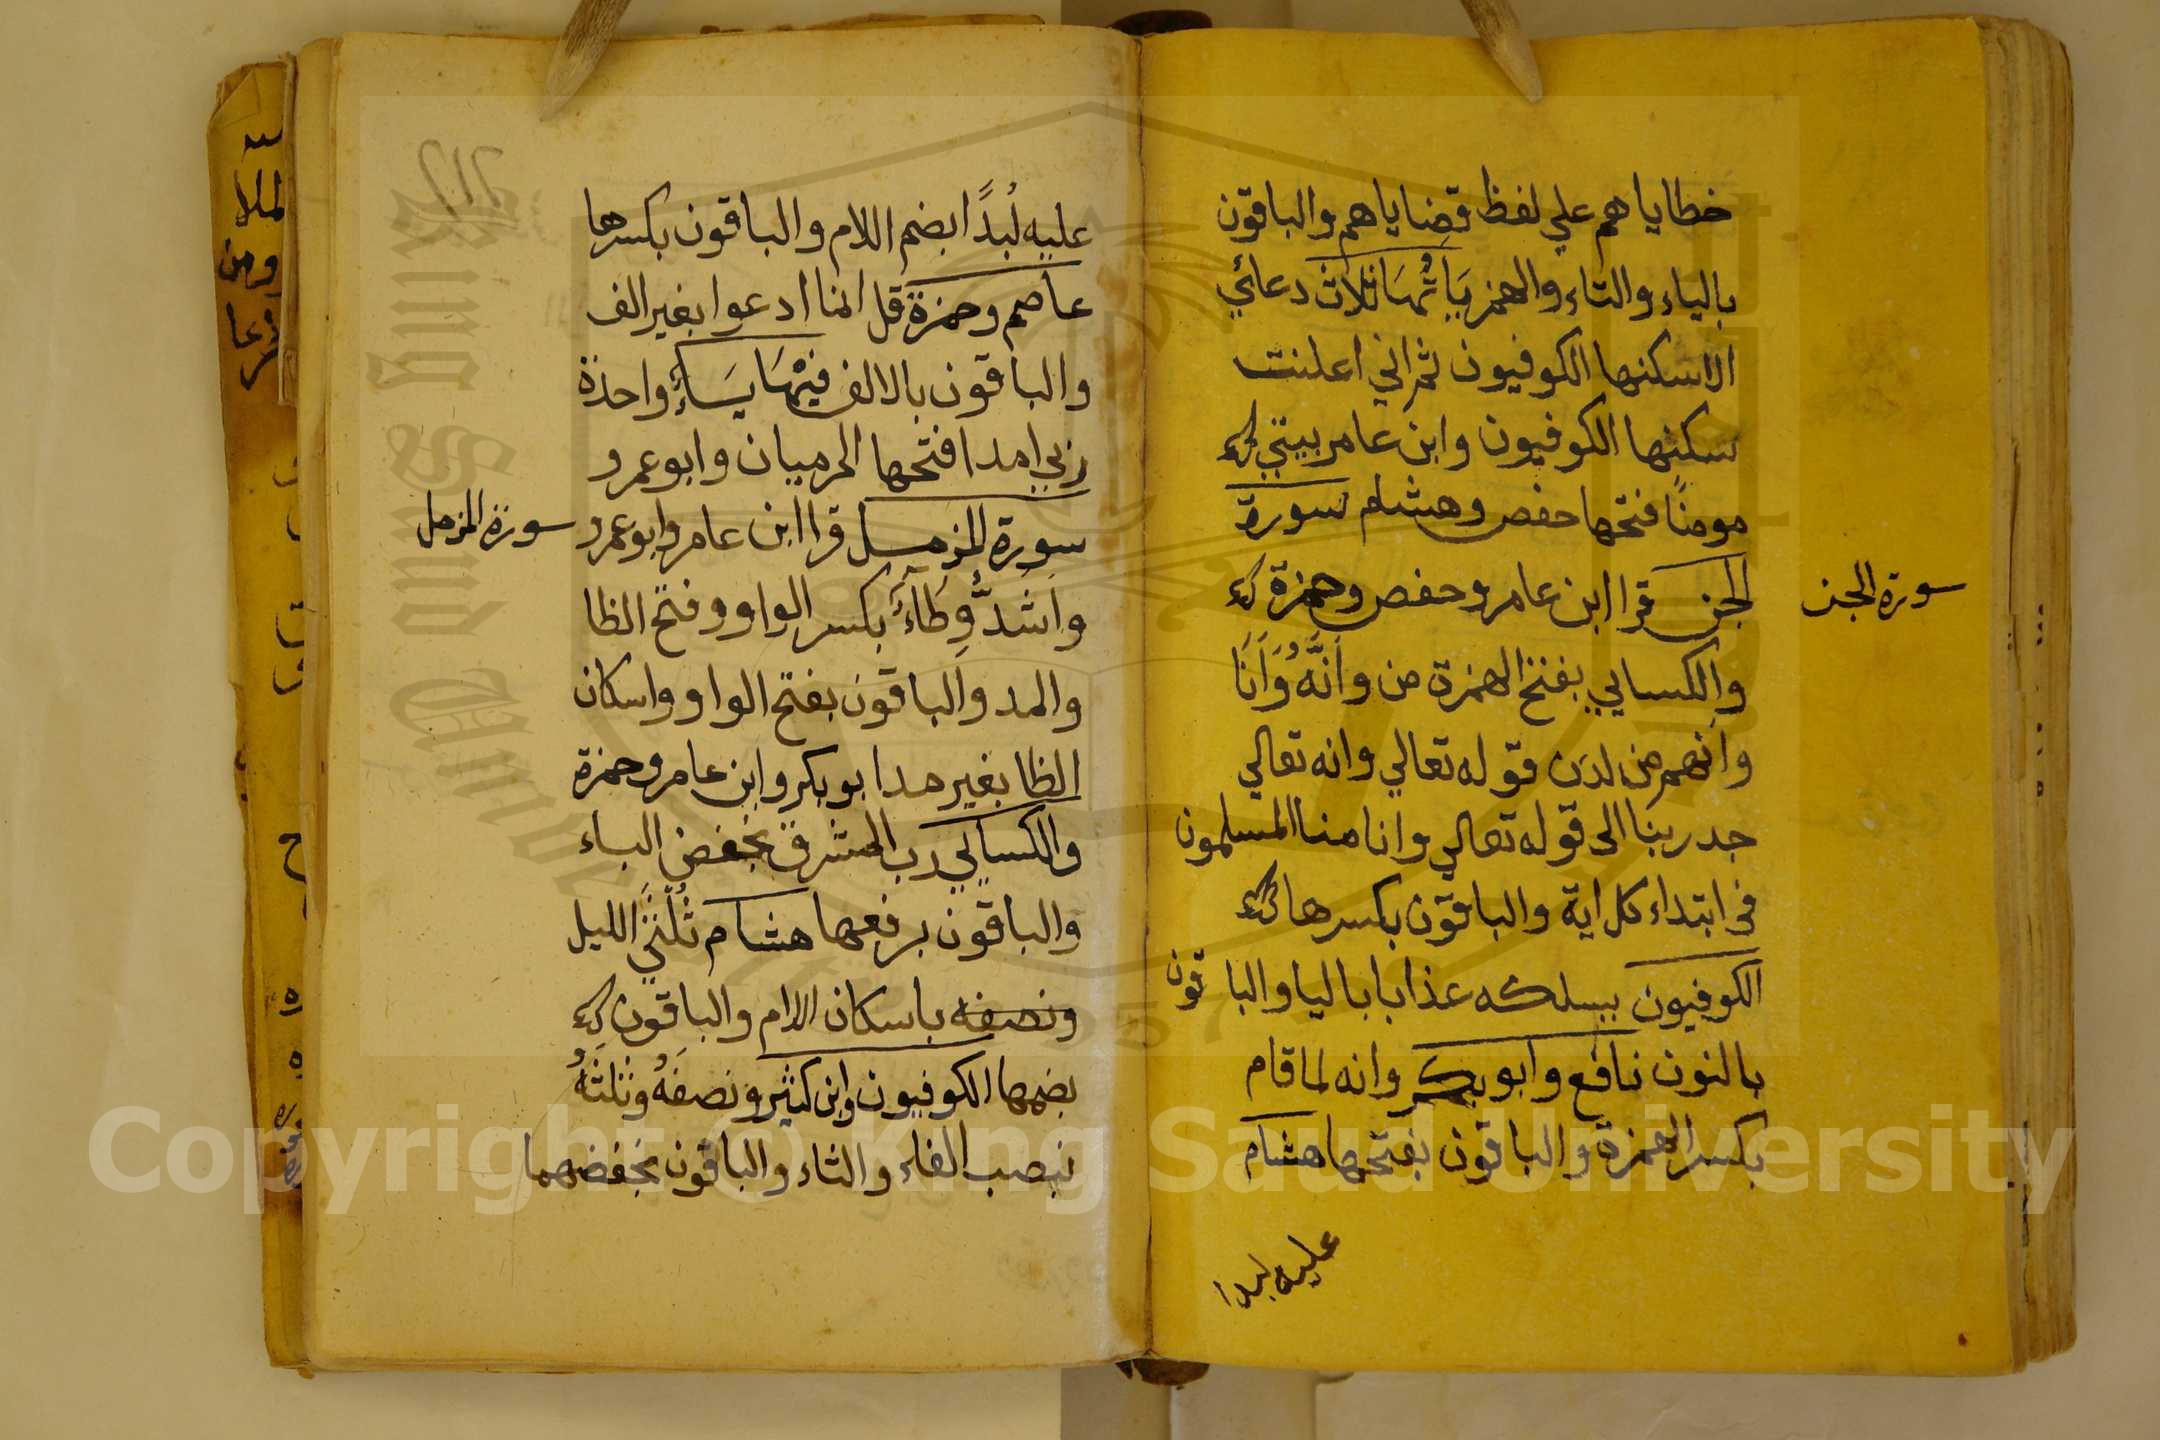 خطاياهم علي لفظ قضاياهم والباقون
بالياء والتاء والهمز يَاتُهَا ثلاث دعائي
الا سكنها الكوفيون ثم اني اعلنت
سكنها الكوفيون وابن عامر بيتي
مومنًا فتحها حفص وهشام سورة
الجن قرا ابن عامر وحفص وحمزة
والكسايي بفتح الهمزة من وَاَنَّهُ وَاَنَا
وانهم من لدن قوله تعالي وانه تعالي
جد ربنا الى قوله تعالي وانا منا المسلمون
في ابتداء كل اية والباقون بكسرها
الكوفيون يسلكه عذابا باليا والباقون
بالنون نافع وابو بكر وانه لما قام
بكسر الهمزة والباقون بفتحها هشام
عليه لبدا
سورة الجن
عليه لُبَدًا بضم اللام والباقون بكسرها
عاصم وحمزة قل انما ادعوا بغير الف
والباقون بالالف فيْهَا يَاءٌ واحدة
ربي امدا فتحها الحرميان وابو عمرو
سورة المزمل قرا ابن عامر وابو عمرو
سورة المزمل
واَشَدُّ وِطَآءً بكسر الواو وفتح الظا
والمد والباقون بفتح الواو واسكان
الظا بغير مد ابو بكر وابن عامر وحمزة
والكسائي رب المشرق بخفض الباء
والباقون برفعها هشام ثُلْثَيِ الليل
ونصفه باسكان اللام والباقون
بضمها الكوفيون وابن كثير ونصفَهُ وثلثَهُ
بنصب الفاء والثاء والباقون بخفضهما
Copyright © King Saud University